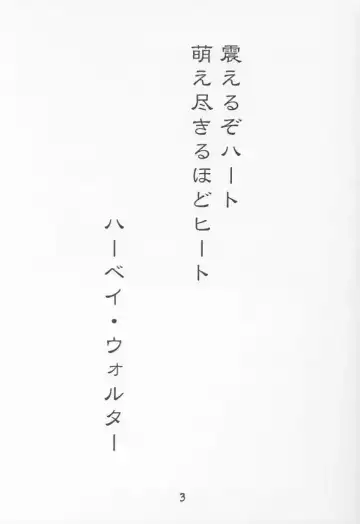 震えるぞハート
萌え尽きるほどヒート
ハーベイ・ウォルター
3